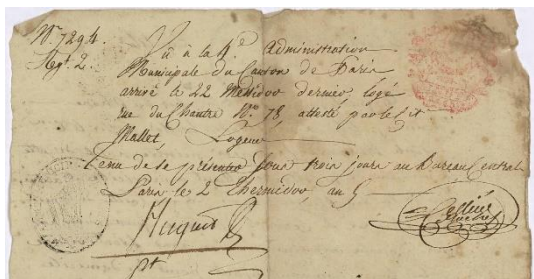 N.º 7294.
Reg.t 2.
Vu à la 4.e administration
Municipale du Canton de Paris
arrivé le 22 Messidor dernier logé
rue du Chantre N.º 78, attesté par le S.t
Mallet, Logeur
tenu de se présenter sous trois jours au Bureau Central
Paris le 2 Thermidor an 5
Huguet